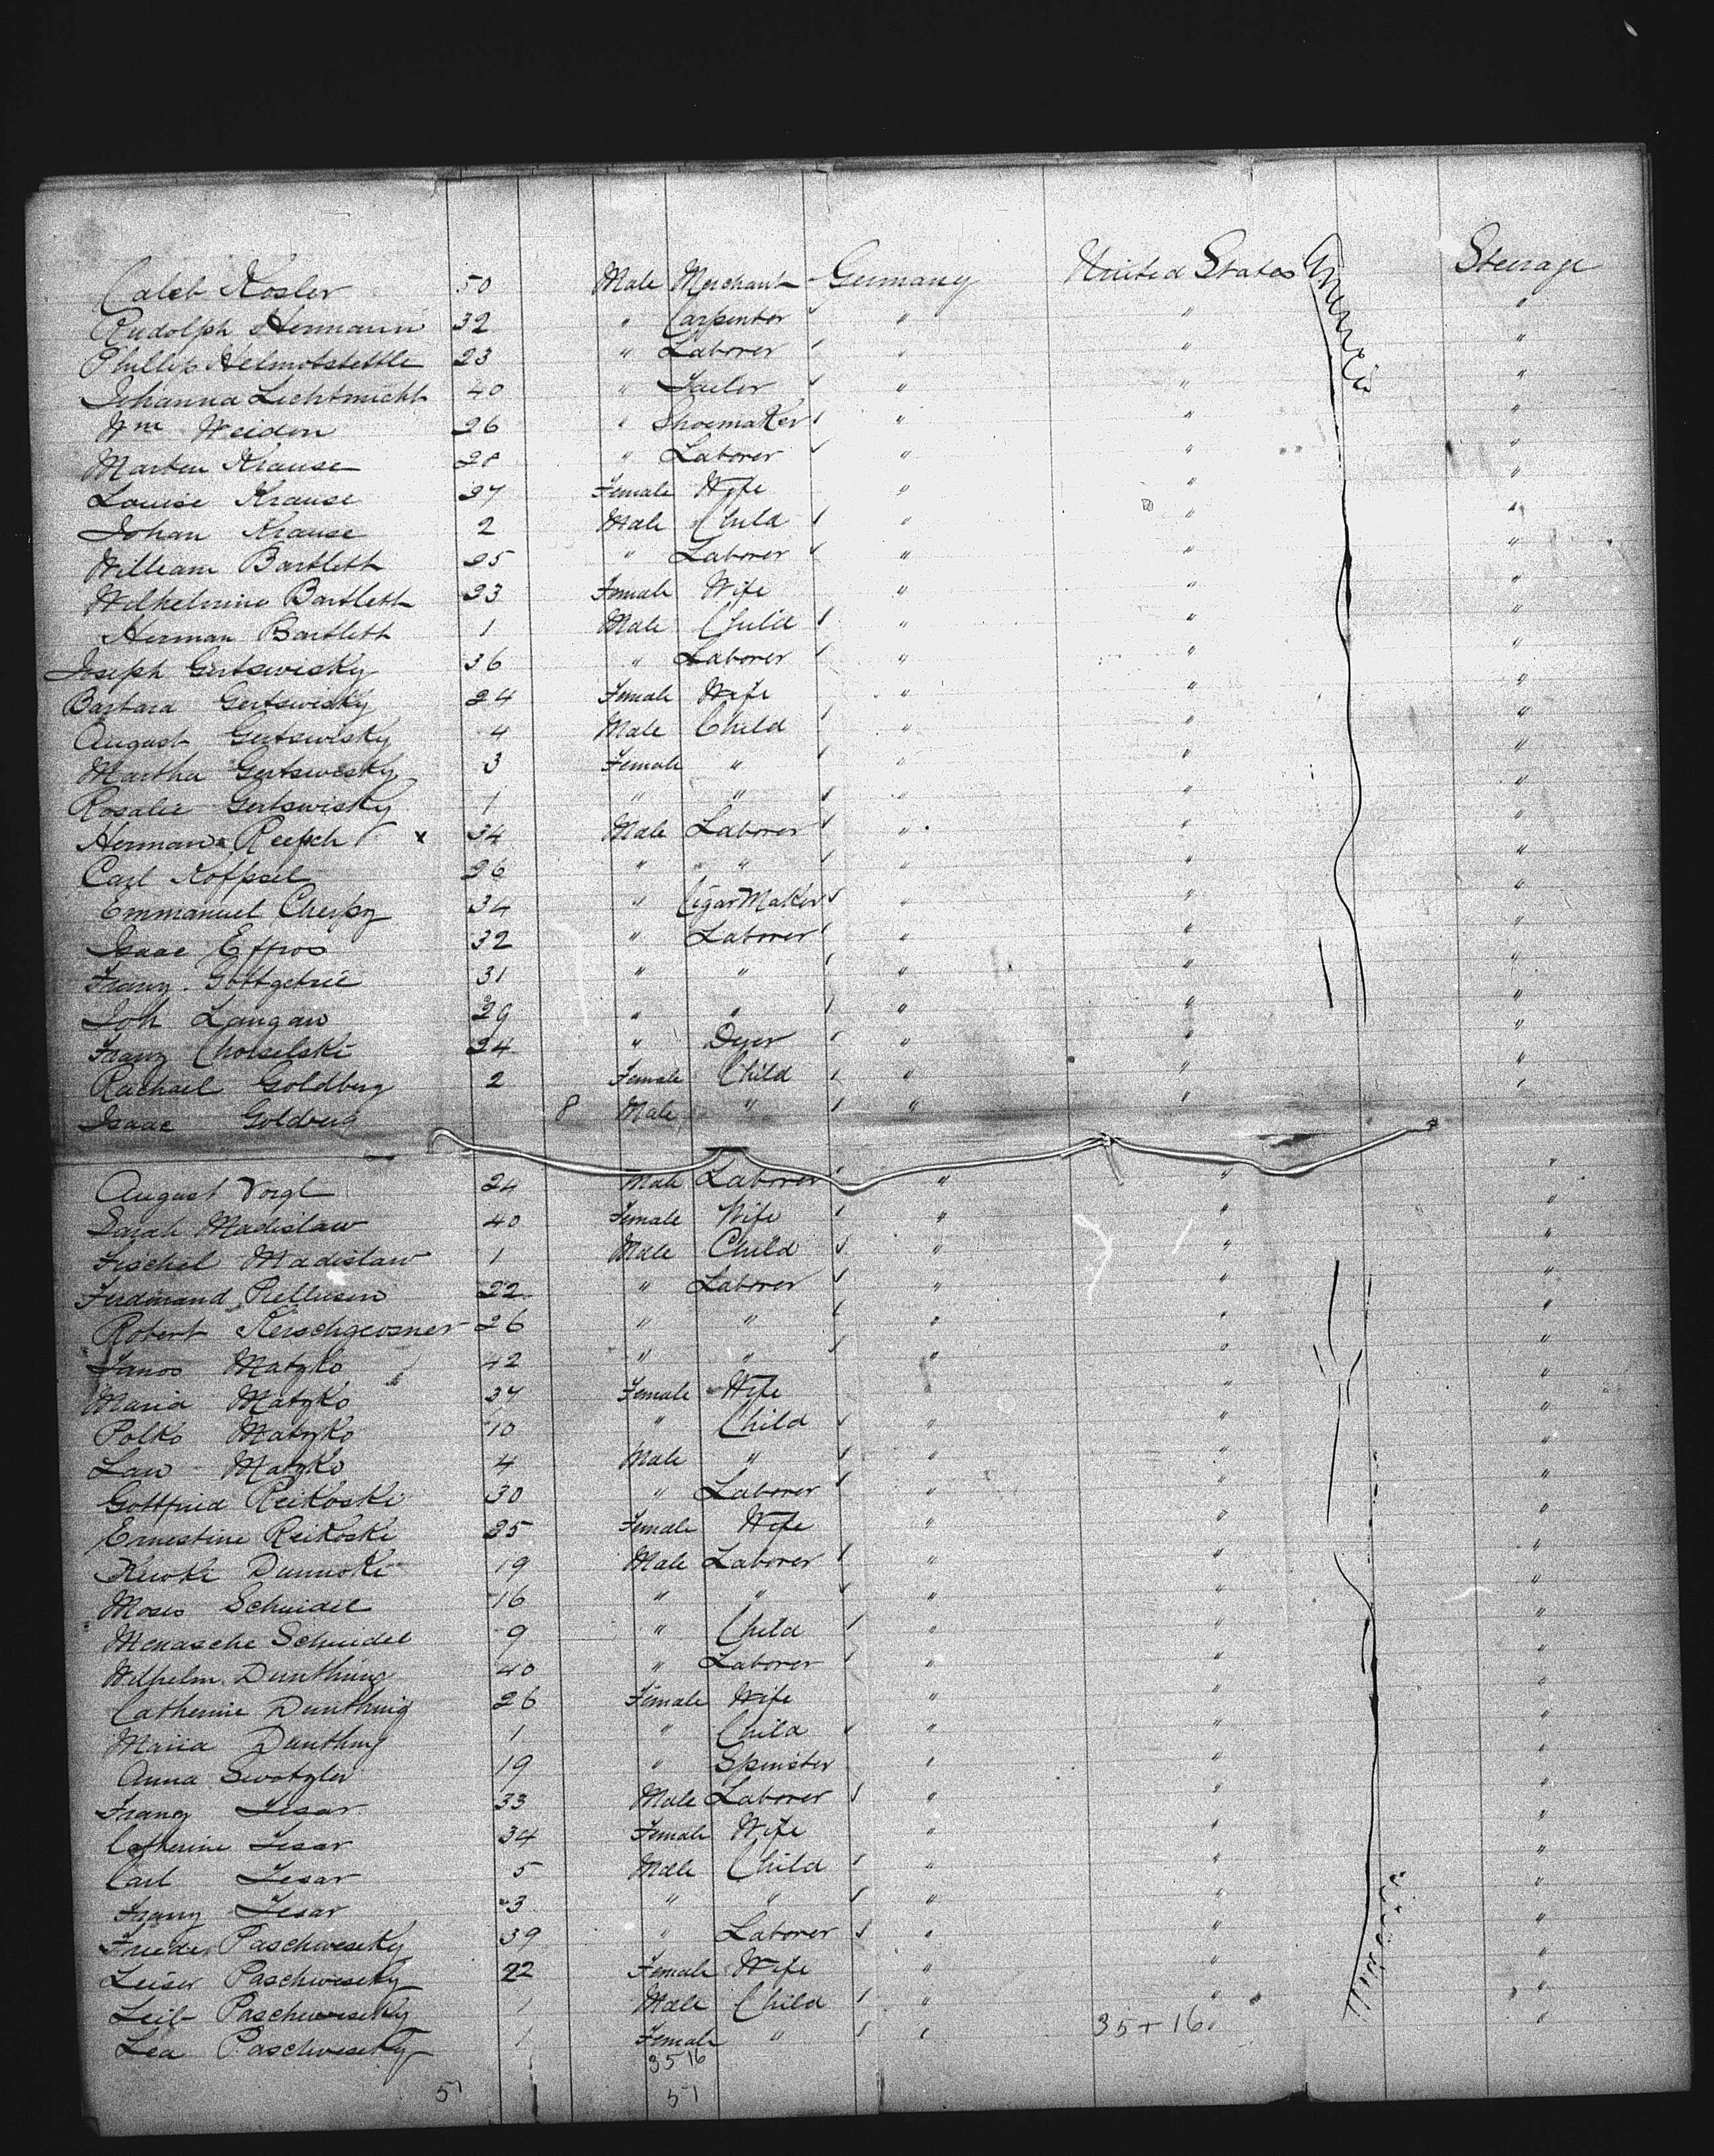 Caleb Kosler 50 Male Merchant Germany United States America Steerage
Rudolph Hermann 32 " Carpenter " " "
Phillip Helmotstettle 23 " Laborer " " "
Johanna Lichtnicht 40 " Tailer " " "
Wm Weiden 26 " Shoemaker " " "
Marten Krause 28 " Laborer " " "
Louise Krause 27 Female Wife " " "
Johan Krause 2 Male Child " " "
William Bartlett 25 " Laborer " " "
Wilhelmine Bartlett 23 Female Wife " " "
Herman Bartlett 1 Male Child " " "
Joseph Gertswisky 36 " Laborer " " "
Barbara Gertswisky 24 Female Wife " " "
August Gertswisky 4 Male Child " " "
Martha Gertswisky 3 Female " " " "
Rosalie Gertswisky 1 " " " " "
Herman Reepch x 34 Male Laborer " " "
Carl Koppsel 26 " " " " "
Emmanuel 34 " Cigar Maker " " "
Isaac Effros 32 " Laborer " " "
Franz Gottgetrie 31 " " " " "
Joh Langau 29 " " " " "
Franz Choiselski 24 " Dyer " " "
Rachael Goldberg 2 Female Child " " "
Isaac Goldberg 8 Male " " " "
August Voigt 24 Male Laborer " " "
Sarah Madislaw 40 Female Wife " " "
Fischel Madislaw 1 Male Child " " "
Ferdinand 22 " Laborer " " "
Robert Kerschgessner 26 " " " " "
Janos Matzko 42 " " " " "
Maria Matzko 37 Female Wife " " "
Polko Matzko 10 " Child " " "
Law Matzko 4 Male " " " "
Gottfried Reikoski 30 " Laborer " " "
Ernestine Reikoski 25 Female Wife " " "
Dunnoki 19 Male Laborer " " "
Moses Schuidel 16 " " " " "
Menasche Schuidel 9 " Child " " "
Wilhelm Dunthing 40 " Laborer " " "
Catherine Dunthing 26 Female Wife " " "
Maria Dunthing 1 " Child " " "
Anna Swatzler 19 " Spinster " " "
Franz Lesar 33 Male Laborer " " "
Catherine Lesar 34 Female Wife " " "
Carl Lesar 5 Male Child " " "
Franz Lesar 3 " " " " "
Frieder Paschwesky 39 " Laborer " " "
Leiser Paschwesky 22 Female Wife " " "
Leib Paschwesky 1 Male Child " " "
Lea Paschwesky 1 Female " " 35+16 "
3516
51 51